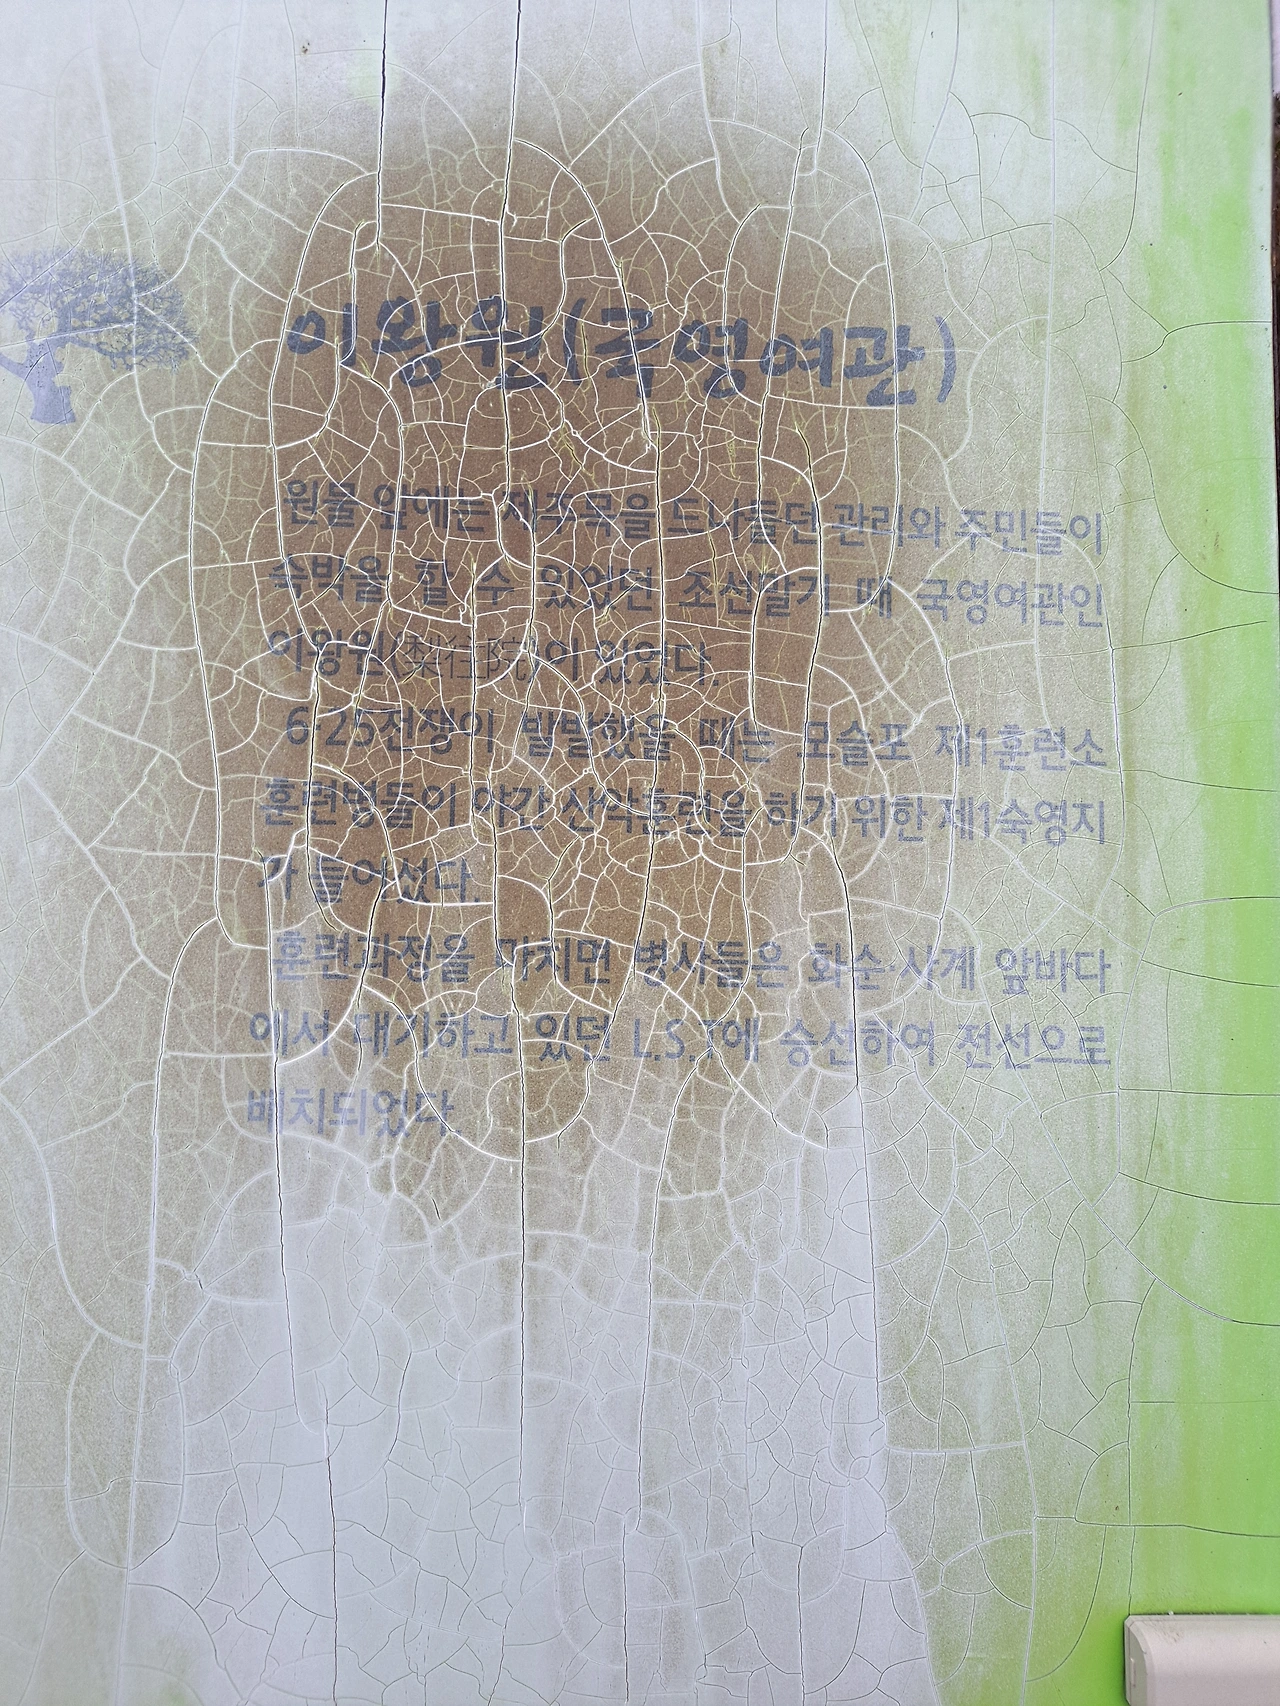 이왕원(국영여관)
원물 앞에는 제주목을 드나들던 관리와 주민들이
숙박을 할 수 있었던 조선말기 때 국영여관인
이왕원(梨往院)이 있었다.
6·25전쟁이 발발했을 때는 모슬포 제1훈련소
훈련병들이 야간 산악훈련을 하기 위한 제1숙영지
가 들어섰다.
훈련과정을 마치면 병사들은 화순·사계 앞바다
에서 대기하고 있던 L.S.T에 승선하여 전선으로
배치되었다.